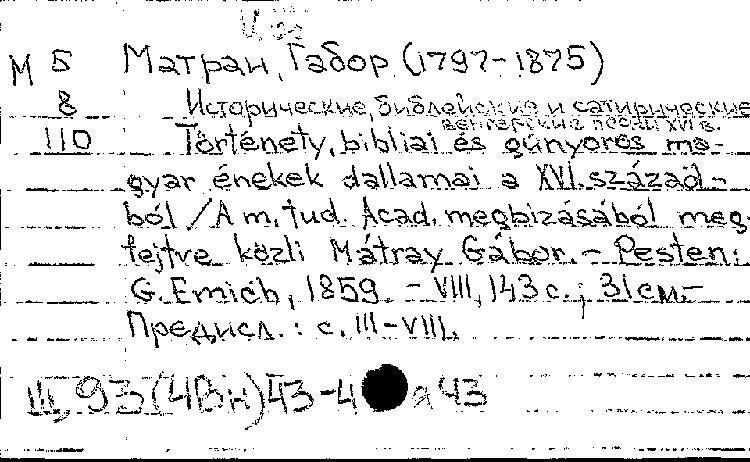 М 5 Матраи, Габор (1797-1875)
8 Исторические, библейские и сатирические
венгерские песни XVI в.
110 Történety, bibliai és gúnyoros ma-
gyar énekek dallamai a XVI. század-
ból / A m. tud. Acad. megbízásából meg-
fejtve közli Mátray Gábor. - Pesten:
G. Emich, 1859. - VIII, 143 с.; 31 см.-
Предисл.: с. III-VIII.
Ш, 93 (4Вн) 43-4 я 43